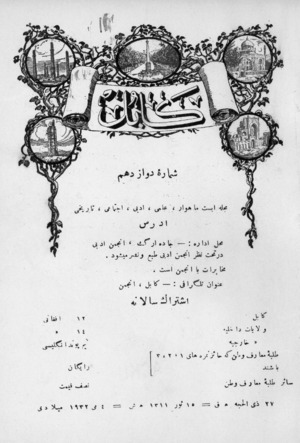 کابل
شمارهٔ دوازدهم
مجله ایست ماهوار، علمی، ادبی، اجتماعی، تاریخی
ادرس
محل اداره: — جاده ارگ، انجمن ادبی
درتحت نظر انجمن ادبی طبع ونشر میشود.
مخابرات با انجمن است.
عنوان تلگرافی: — کابل، انجمن
اشتراک سالانه
کابل ۱۲ افغانی
ولایات داخله ۱۴ »
» خارجه پوند انگلیسی
طلبهٔ معارف وطن که حائز نمره های ۱ ۲ ۳
باشند رایگان
سائر طلبهٔ معارف وطن نصف قیمت
۲۷ ذی الحجه ه ق — ۱۵ ثور ۱۳۱۱ ه ش — می ۱۹۳۲ میلادی